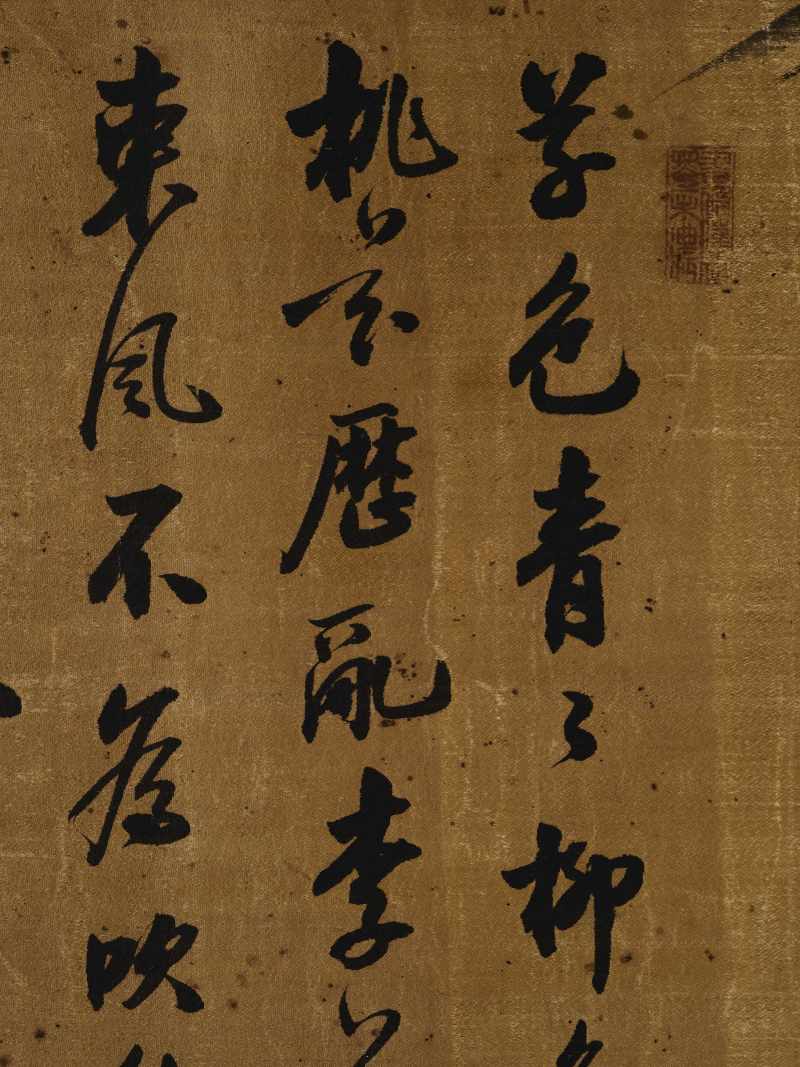 草色青々柳
桃花歷亂李
東風不為吹